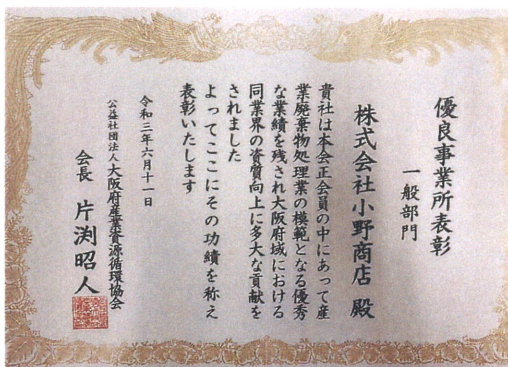 優良事業所表彰
一般部門
株式会社小野商店 殿
貴社は本会正会員の中にあって産
業廃棄物処理業の模範となる優秀
な業績を残され大阪府域における
同業界の資質向上に多大な貢献を
されました
よってここにその功績を称え
表彰いたします
令和三年六月十一日
公益社団法人大阪府産業資源循環協会
会長 片渕昭人